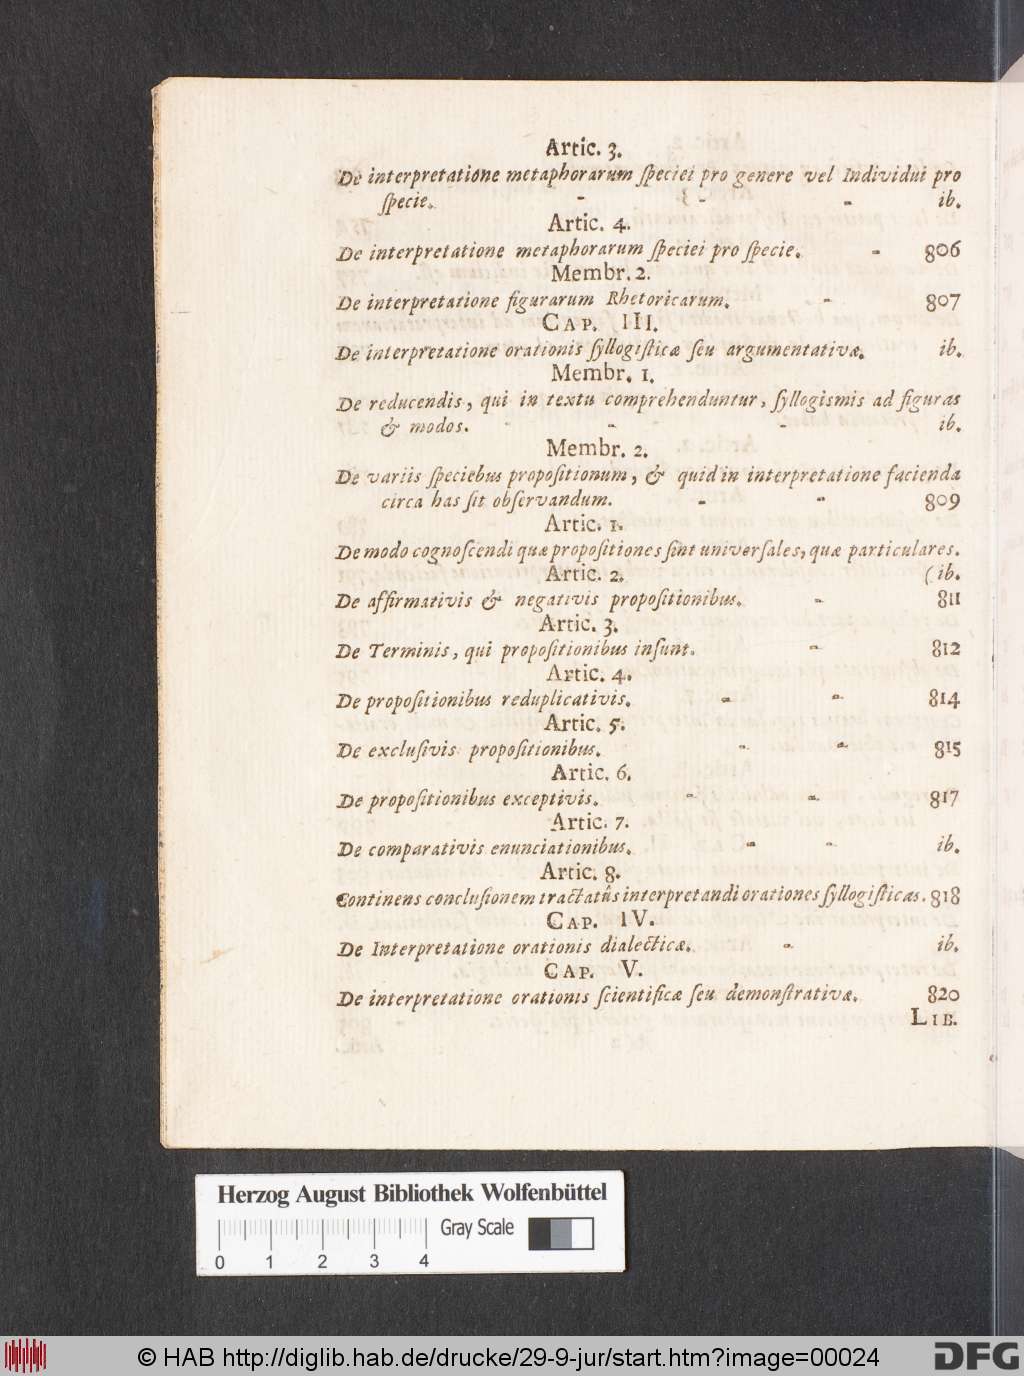 Artic. 3.
De interpretatione metaphorarum ſpeciei pro genere vel Individui pro
ſpecie. - - - ib.
Artic. 4.
De interpretatione metaphorarum ſpeciei pro ſpecie. - 806
Membr. 2.
De interpretatione figurarum Rhetoricarum. - 807
CAP. III.
De interpretatione orationis ſyllogiſticæ ſeu argumentativæ. ib.
Membr. 1.
De reducendis, qui in textu comprehenduntur, ſyllogismis ad figuras
& modos. - - - ib.
Membr. 2.
De variis ſpeciebus propoſitionum, & quid in interpretatione facienda
circa has ſit obſervandum. - - 809
Artic. 1.
De modo cognoſcendi quæ propoſitiones ſint univerſales, quæ particulares.
Artic. 2. (ib.
De affirmativis & negativis propoſitionibus. - 811
Artic. 3.
De Terminis, qui propoſitionibus inſunt. - 812
Artic. 4.
De propoſitionibus reduplicativis. - - 814
Artic. 5.
De excluſivis propoſitionibus. - - 815
Artic. 6.
De propoſitionibus exceptivis. - - 817
Artic. 7.
De comparativis enunciationibus. - - ib.
Artic. 8.
Continens concluſionem tractatûs interpretandi orationes ſyllogiſticas. 818
CAP. IV.
De Interpretatione orationis dialecticæ. - ib.
CAP. V.
De interpretatione orationis ſcientificæ ſeu demonſtrativæ. 820
LIB.
Herzog August Bibliothek Wolfenbüttel
Gray Scale
0 1 2 3 4
© HAB http://diglib.hab.de/drucke/29-9-jur/start.htm?image=00024
DFG